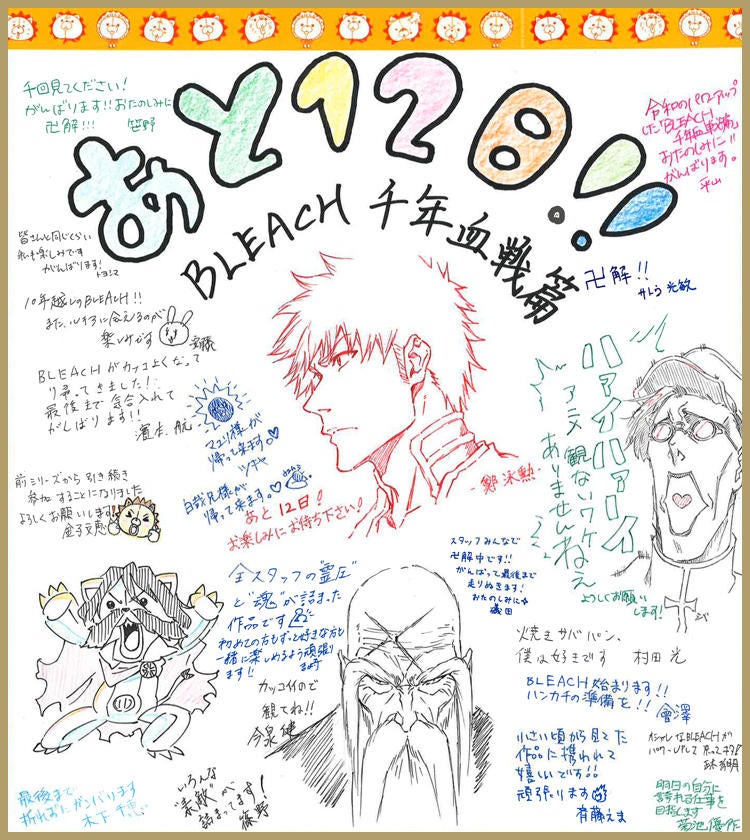 あと12日!!
BLEACH 千年血戦篇
千回見てください!
がんばります!!おたのしみに
卍解!!! 笹野
令和のパワーアップ
したBLEACH
千年血戦篇
おたのしみに!!
がんばります。
平山
皆さんと同じくらい
私も楽しみです
がんばります!
トヨシマ
卍解!!
サトウ 光敏
10年越しのBLEACH!!
また、ルキアに会えるのが
楽しみです
BLEACHがカッコよくなって
り帰ってきました!
最後まで気合入れて
がんばります!!
濱本 航
ハァイハァーイ
アニメ観ないワケ
ありませんねぇ
よろしくお願い
します!
マユリ様が
帰って来ます。♡
ツチヤ
白哉兄様が
帰って来ます。♡
あと12日!
お楽しみにお待ち下さい!
-鄭 泳勲-
前シリーズから引き続き
参加することになりました
よろしくお願いします!
金子文恵
全スタッフの"霊圧"
と"魂"が詰まった
作品です
初めての方もずっと好きな方も
一緒に楽しめるよう頑張り
ます!!
スタッフみんなで
卍解中です!!
がんばって最後まで
走りぬきます!
おたのしみに☆
磯田
カッコイイので
観てね!!
今泉 健
焼きサバパン、
僕は好きです 村田 光
BLEACH始まります!!
ハンカチの準備を!! 會澤
小さい頃から見てた
作品に携われて
嬉しいです!!
頑張ります
斉藤えま
オシャレなBLEACHが
パワーUPして戻ってキタ!
最後まで
折れずにガンバります
木下 千恵
いろんな
"素敵"が
詰まってます!
篠野
明日の自分に
誇れる仕事を
目指します
菊池 優介